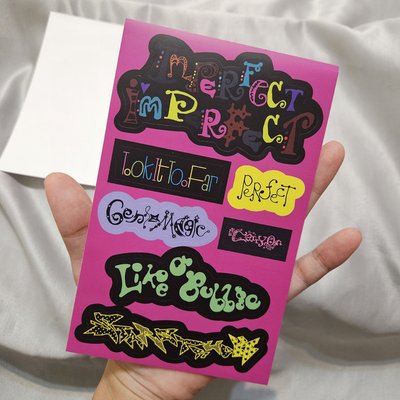 imPERFECT
imPERFECT
tookItTooFar
PERFECT
Magic
CarryOn
Like a Bubble